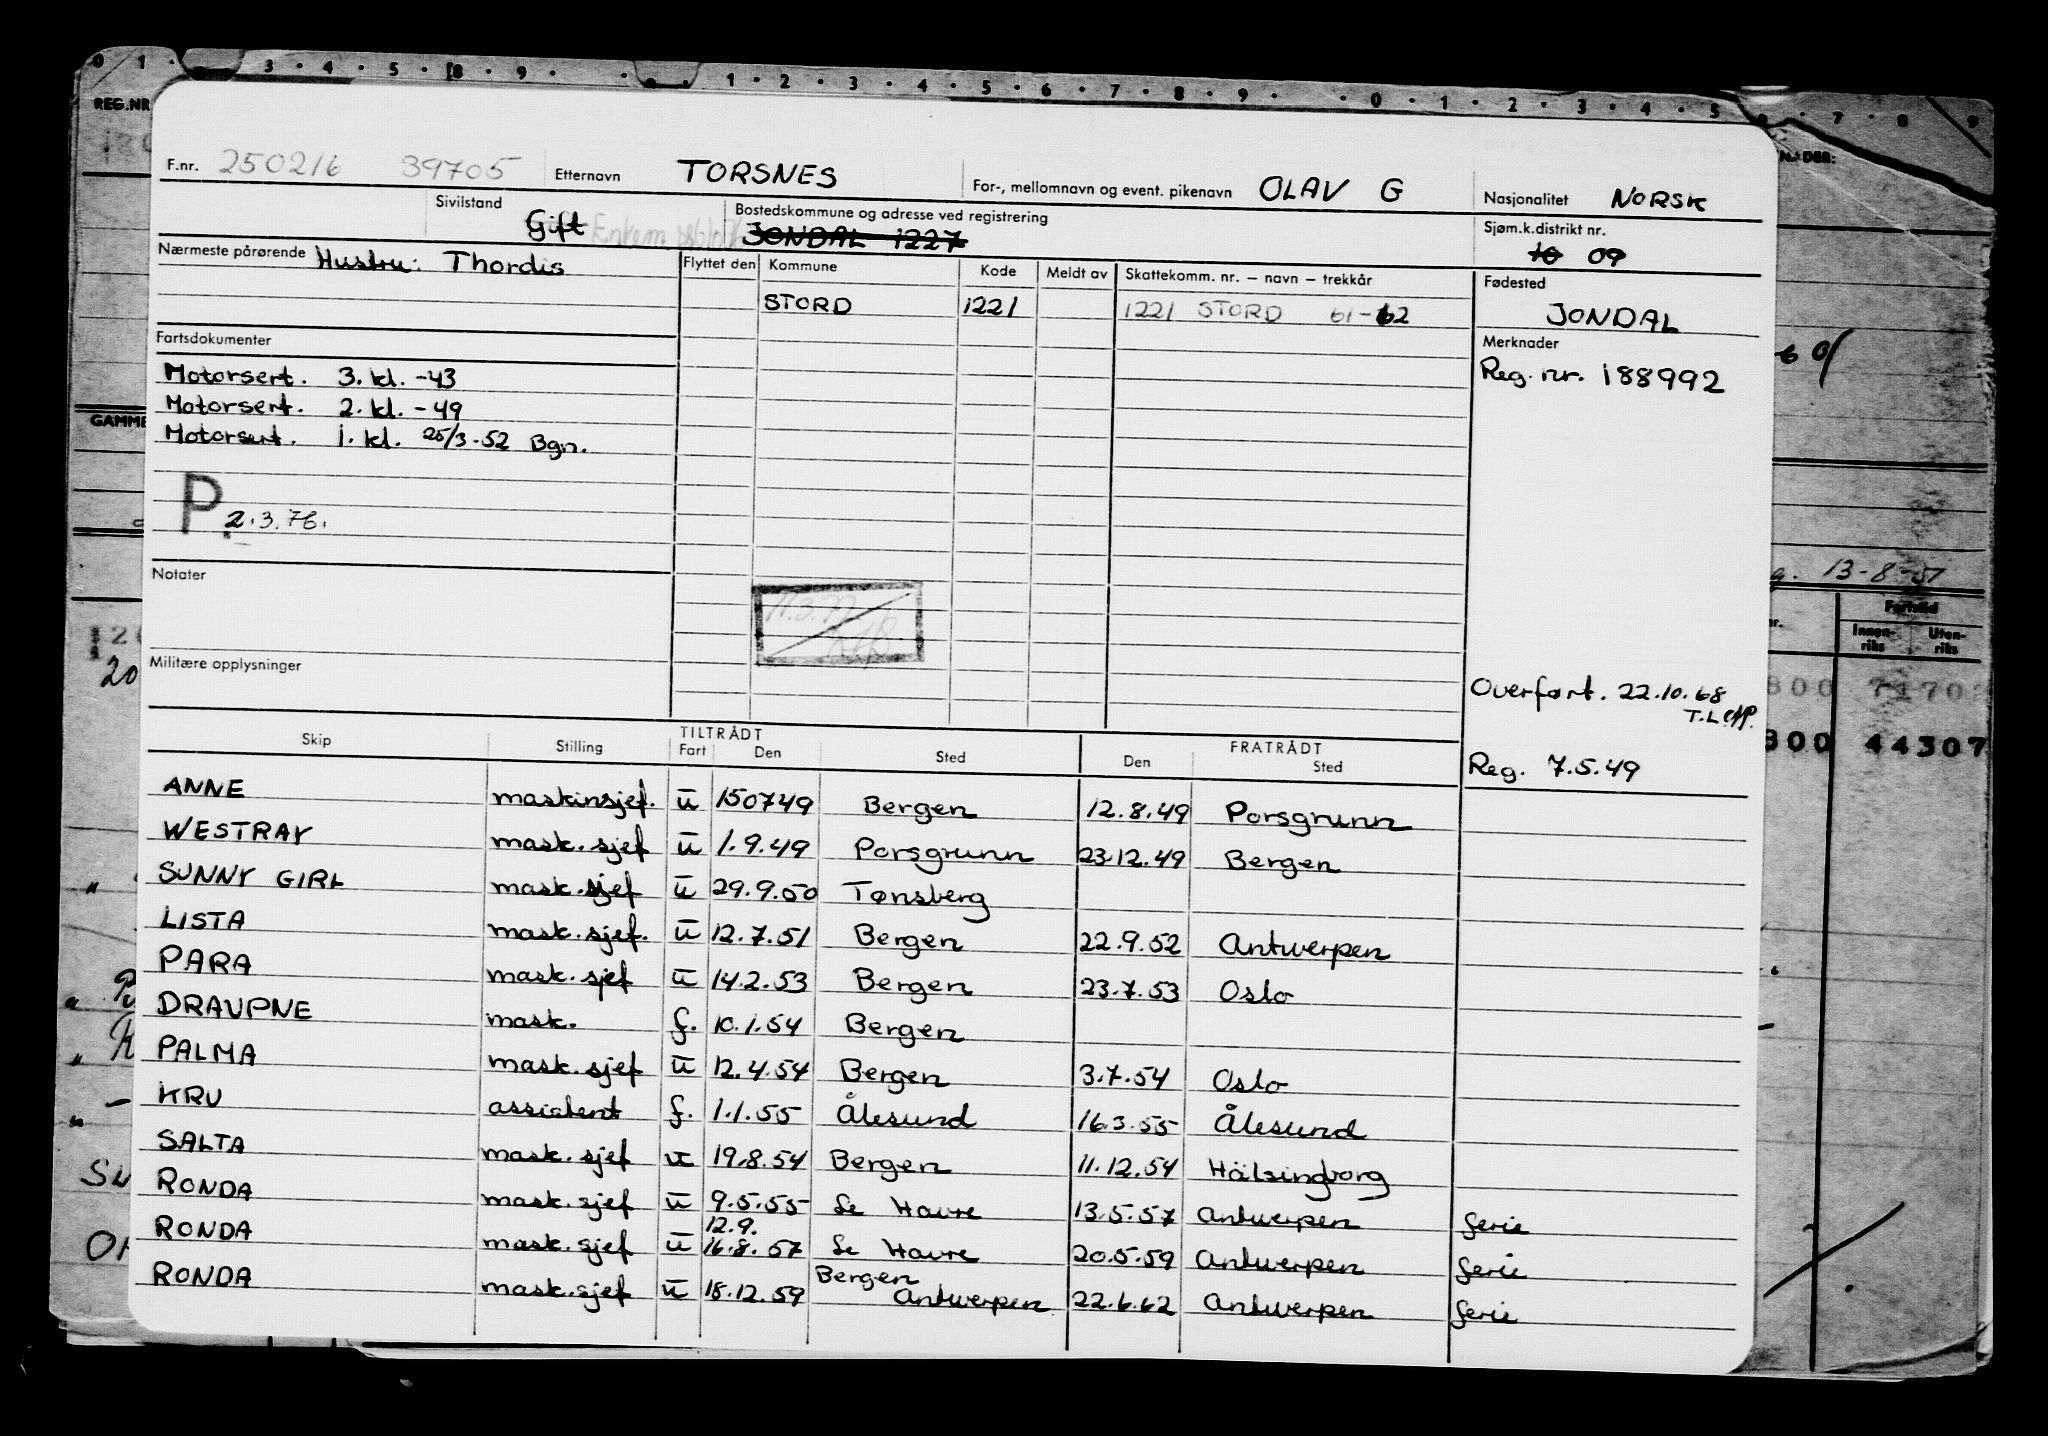 F.nr. 250216 39705 Etternavn TORSNES For-, mellomnavn og event. pikenavn OLAV G Nasjonalitet NORSK
Sivilstand Gift Bostedskommune og adresse ved registrering JONDAL 1227 Sjøm.k.distrikt nr. 10 09
Nærmeste pårørende Hustru: Thordis Flyttet den Kommune Kode Meldt av Skattekomm. nr. – navn – trekkår Fødested
STORD 1221 1221 STORD 61-62 JONDAL
Fartsdokumenter Merknader
Motorsert. 3. kl. -43 Reg. nr. 188992
Motorsert. 2. kl. -49
Motorsert. 1. kl. 25/3-52 Bgn.
P 2.3.76.
Notater
Militære opplysninger
Overført. 22.10.68
T.L
Reg. 7.5.49
TILTRÅDT FRATRÅDT
Skip Stilling Fart Den Sted Den Sted
ANNE maskinsjef. u 150749 Bergen 12.8.49 Porsgrunn
WESTRAY mask.sjef u 1.9.49 Porsgrunn 23.12.49 Bergen
SUNNY GIRL mask.sjef u 29.9.50 Tønsberg
LISTA mask.sjef. u 12.7.51 Bergen 22.9.52 Antwerpen
PARA mask.sjef u 14.2.53 Bergen 23.7.53 Oslo
DRAUPNE mask. f. 10.1.54 Bergen
PALMA mask.sjef u 12.4.54 Bergen 3.7.54 Oslo
KRU assistent f. 1.1.55 Ålesund 16.3.55 Ålesund
SALTA mask.sjef u 19.8.54 Bergen 11.12.54 Hälsingborg
RONDA mask.sjef u 9.5.55 Le Havre 13.5.57 Antwerpen ferie
12.9.
RONDA mask.sjef u 16.8.57 Le Havre 20.5.59 Antwerpen ferie
Bergen
RONDA mask.sjef u 18.12.59 Antwerpen 22.6.62 Antwerpen ferie
REG.NR
13-8-51
Innen-riks Uten-riks
44307